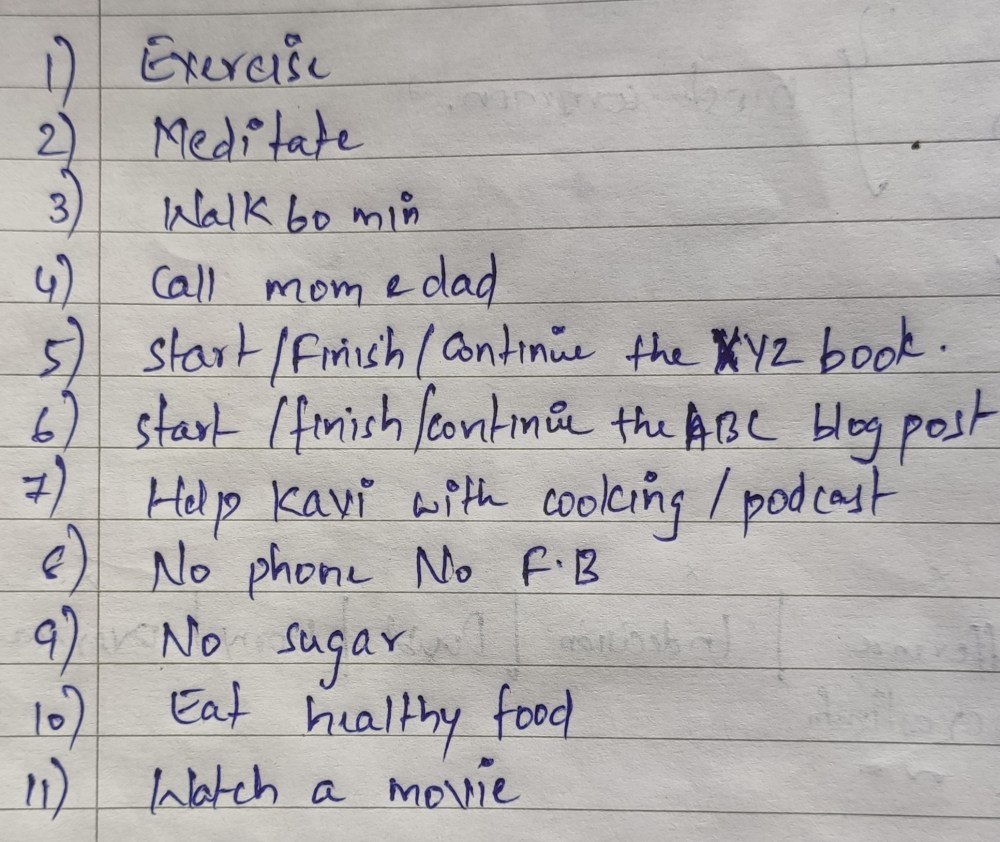 1) Exercise
2) Meditate
3) Walk 60 min
4) Call mom & dad
5) Start/Finish/Continue the XYZ book.
6) Start/finish/continue the ABC blog post
7) Help Kavi with cooking / podcast
8) No phone No F.B
9) No sugar
10) Eat healthy food
11) Watch a movie